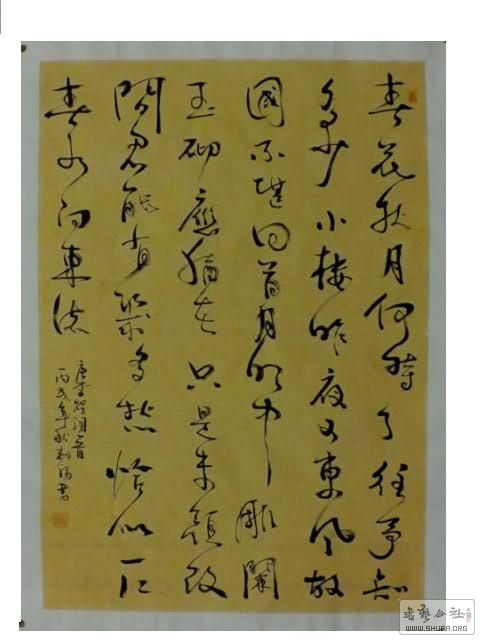 春花秋月何時了往事知
多少小樓昨夜又東風故
國不堪回首月明中雕闌
玉砌應猶在只是朱顏改
問君能有幾多愁恰似一江
春水向東流
唐李煜詞一首
丙戌年秋書
書藝公社
WWW.SHUFA.ORG